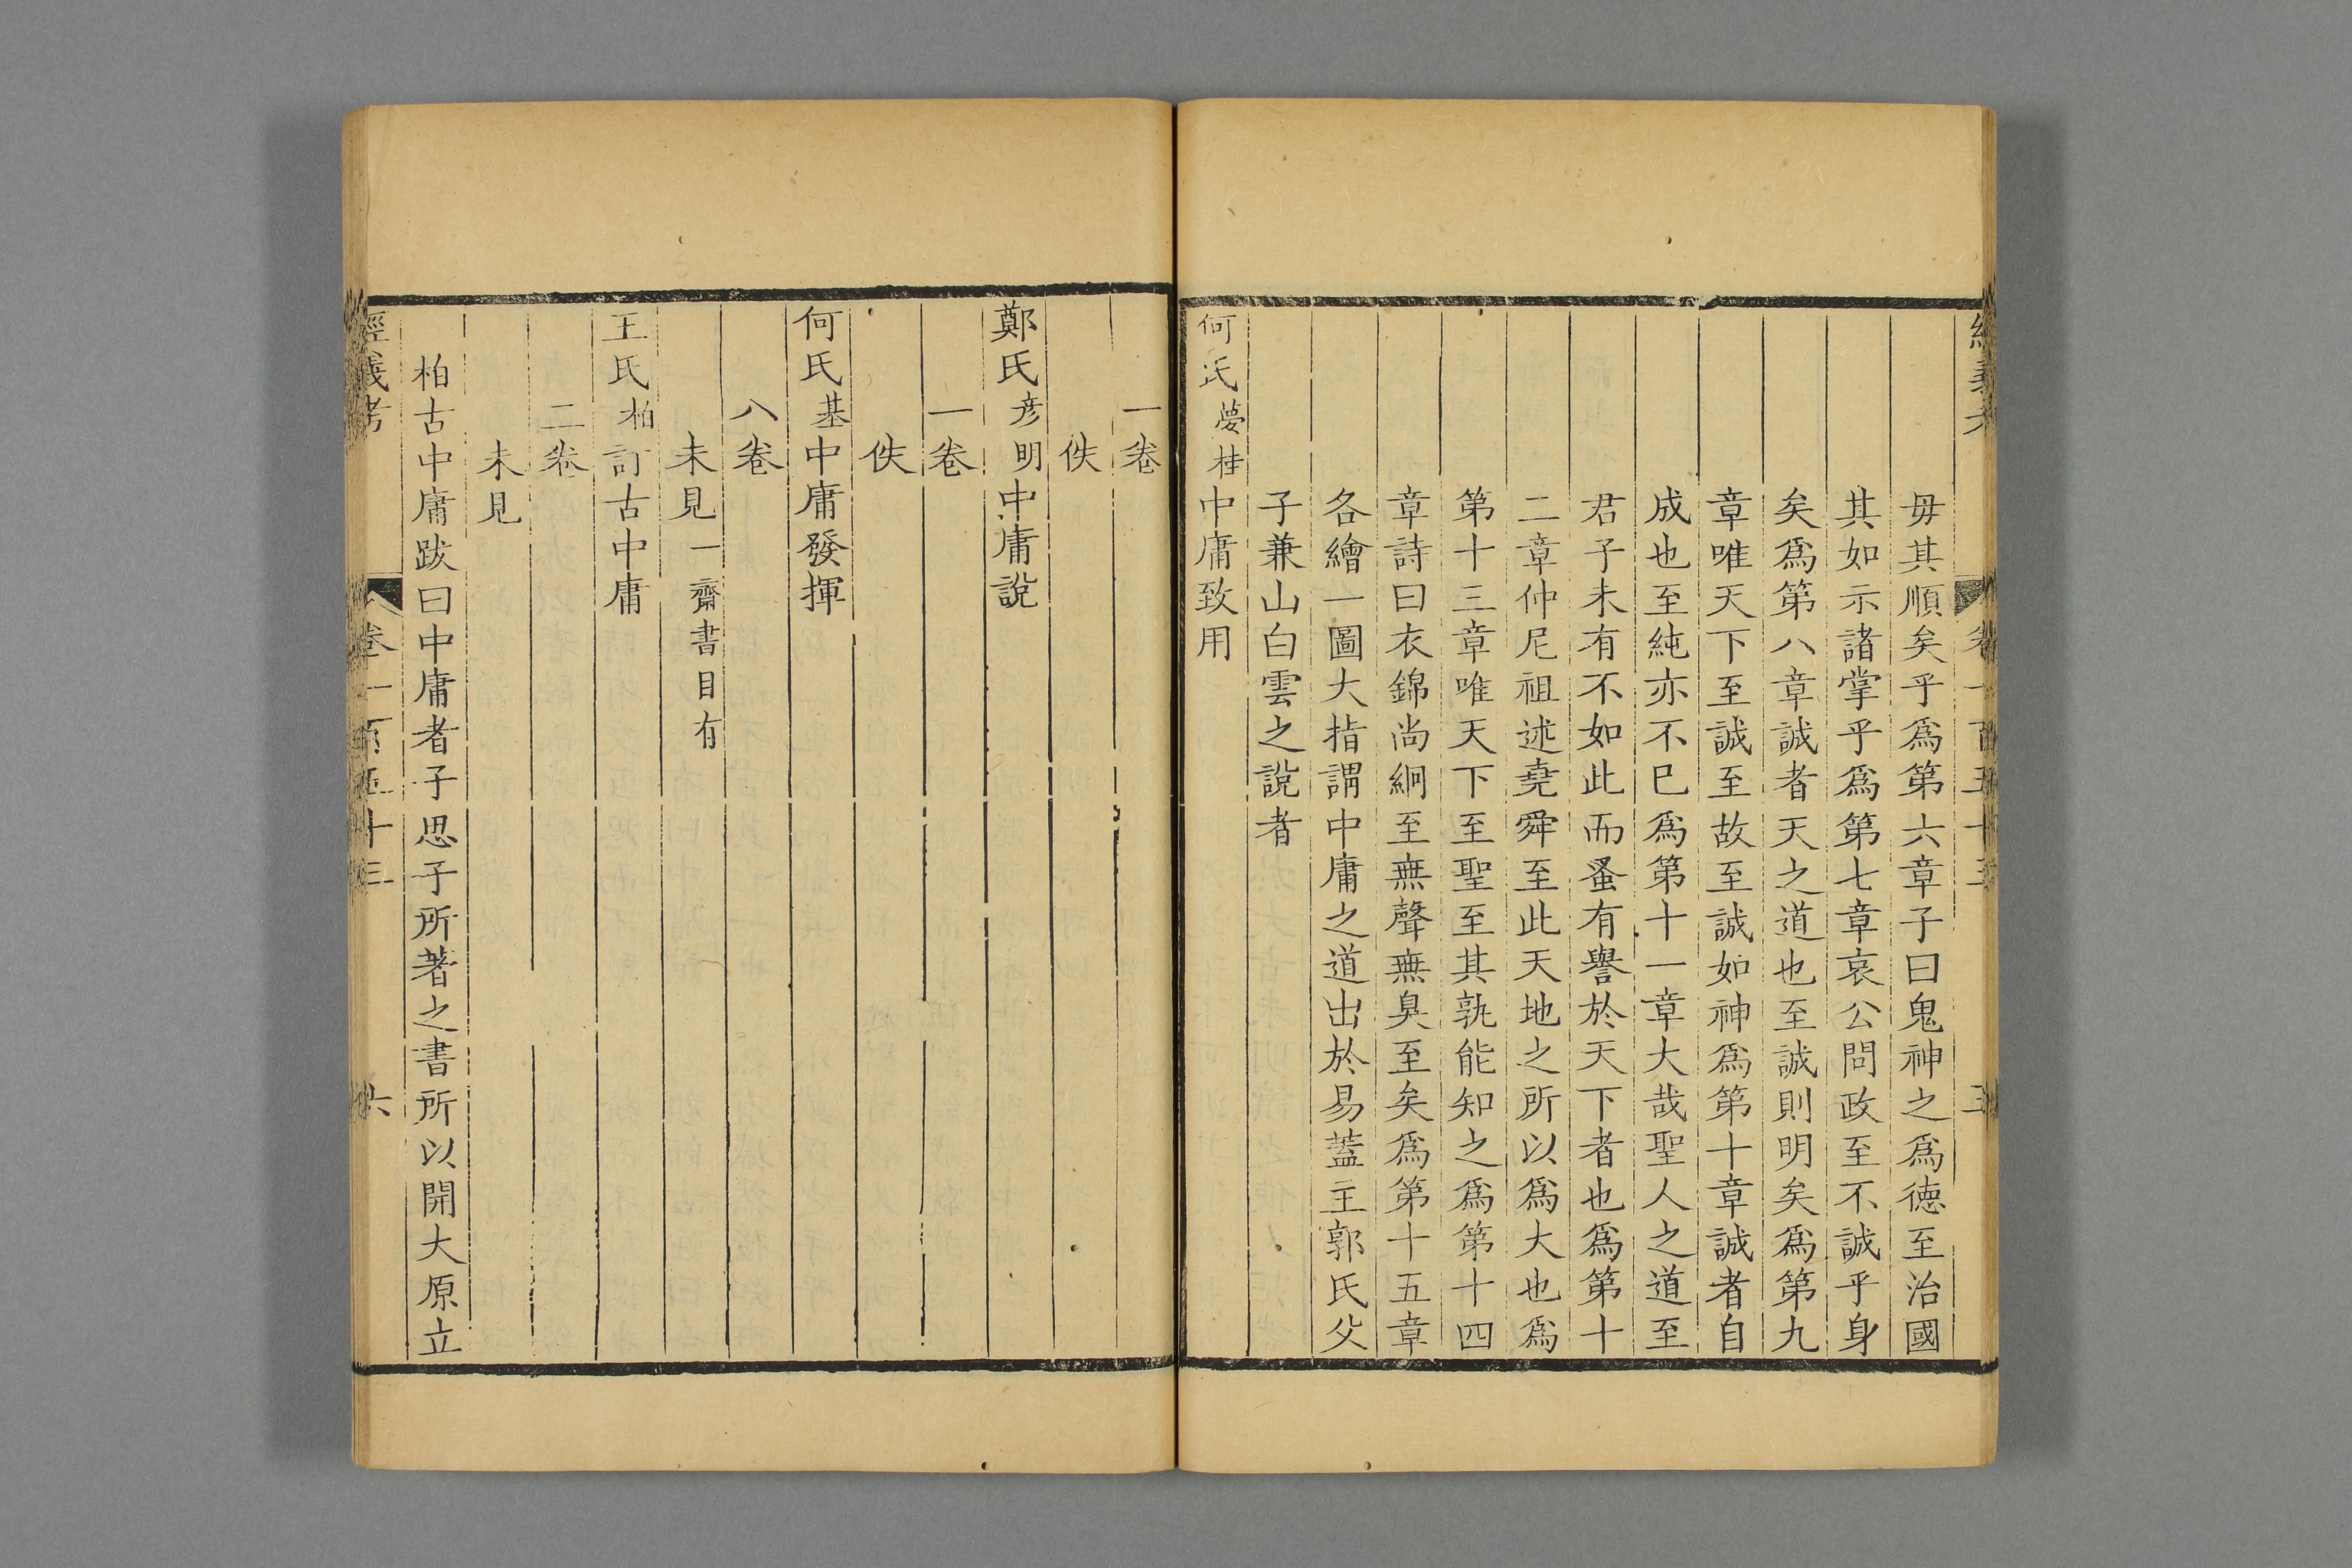 毋其順矣乎爲第六章子曰鬼神之爲德至治國
其如示諸掌乎爲第七章哀公問政至不誠乎身
矣爲第八章誠者天之道也至誠則明矣爲第九
章唯天下至誠至故至誠如神爲第十章誠者自
成也至純亦不已爲第十一章大哉聖人之道至
君子未有不如此而蚤有譽於天下者也爲第十
二章仲尼祖述堯舜至此天地之所以爲大也爲
第十三章唯天下至聖至其孰能知之爲第十四
章詩曰衣錦尚絅至無聲無臭至矣爲第十五章
各繪一圖大指謂中庸之道出於易蓋主郭氏父
子兼山白雲之說者
何氏夢桂中庸致用
一卷
佚
鄭氏彦明中庸說
一卷
佚
何氏基中庸發揮
八卷
未見一齋書目有
王氏柏訂古中庸
二卷
未見
柏古中庸跋曰中庸者子思子所著之書所以開大原立
經義考 卷一百五十三 六